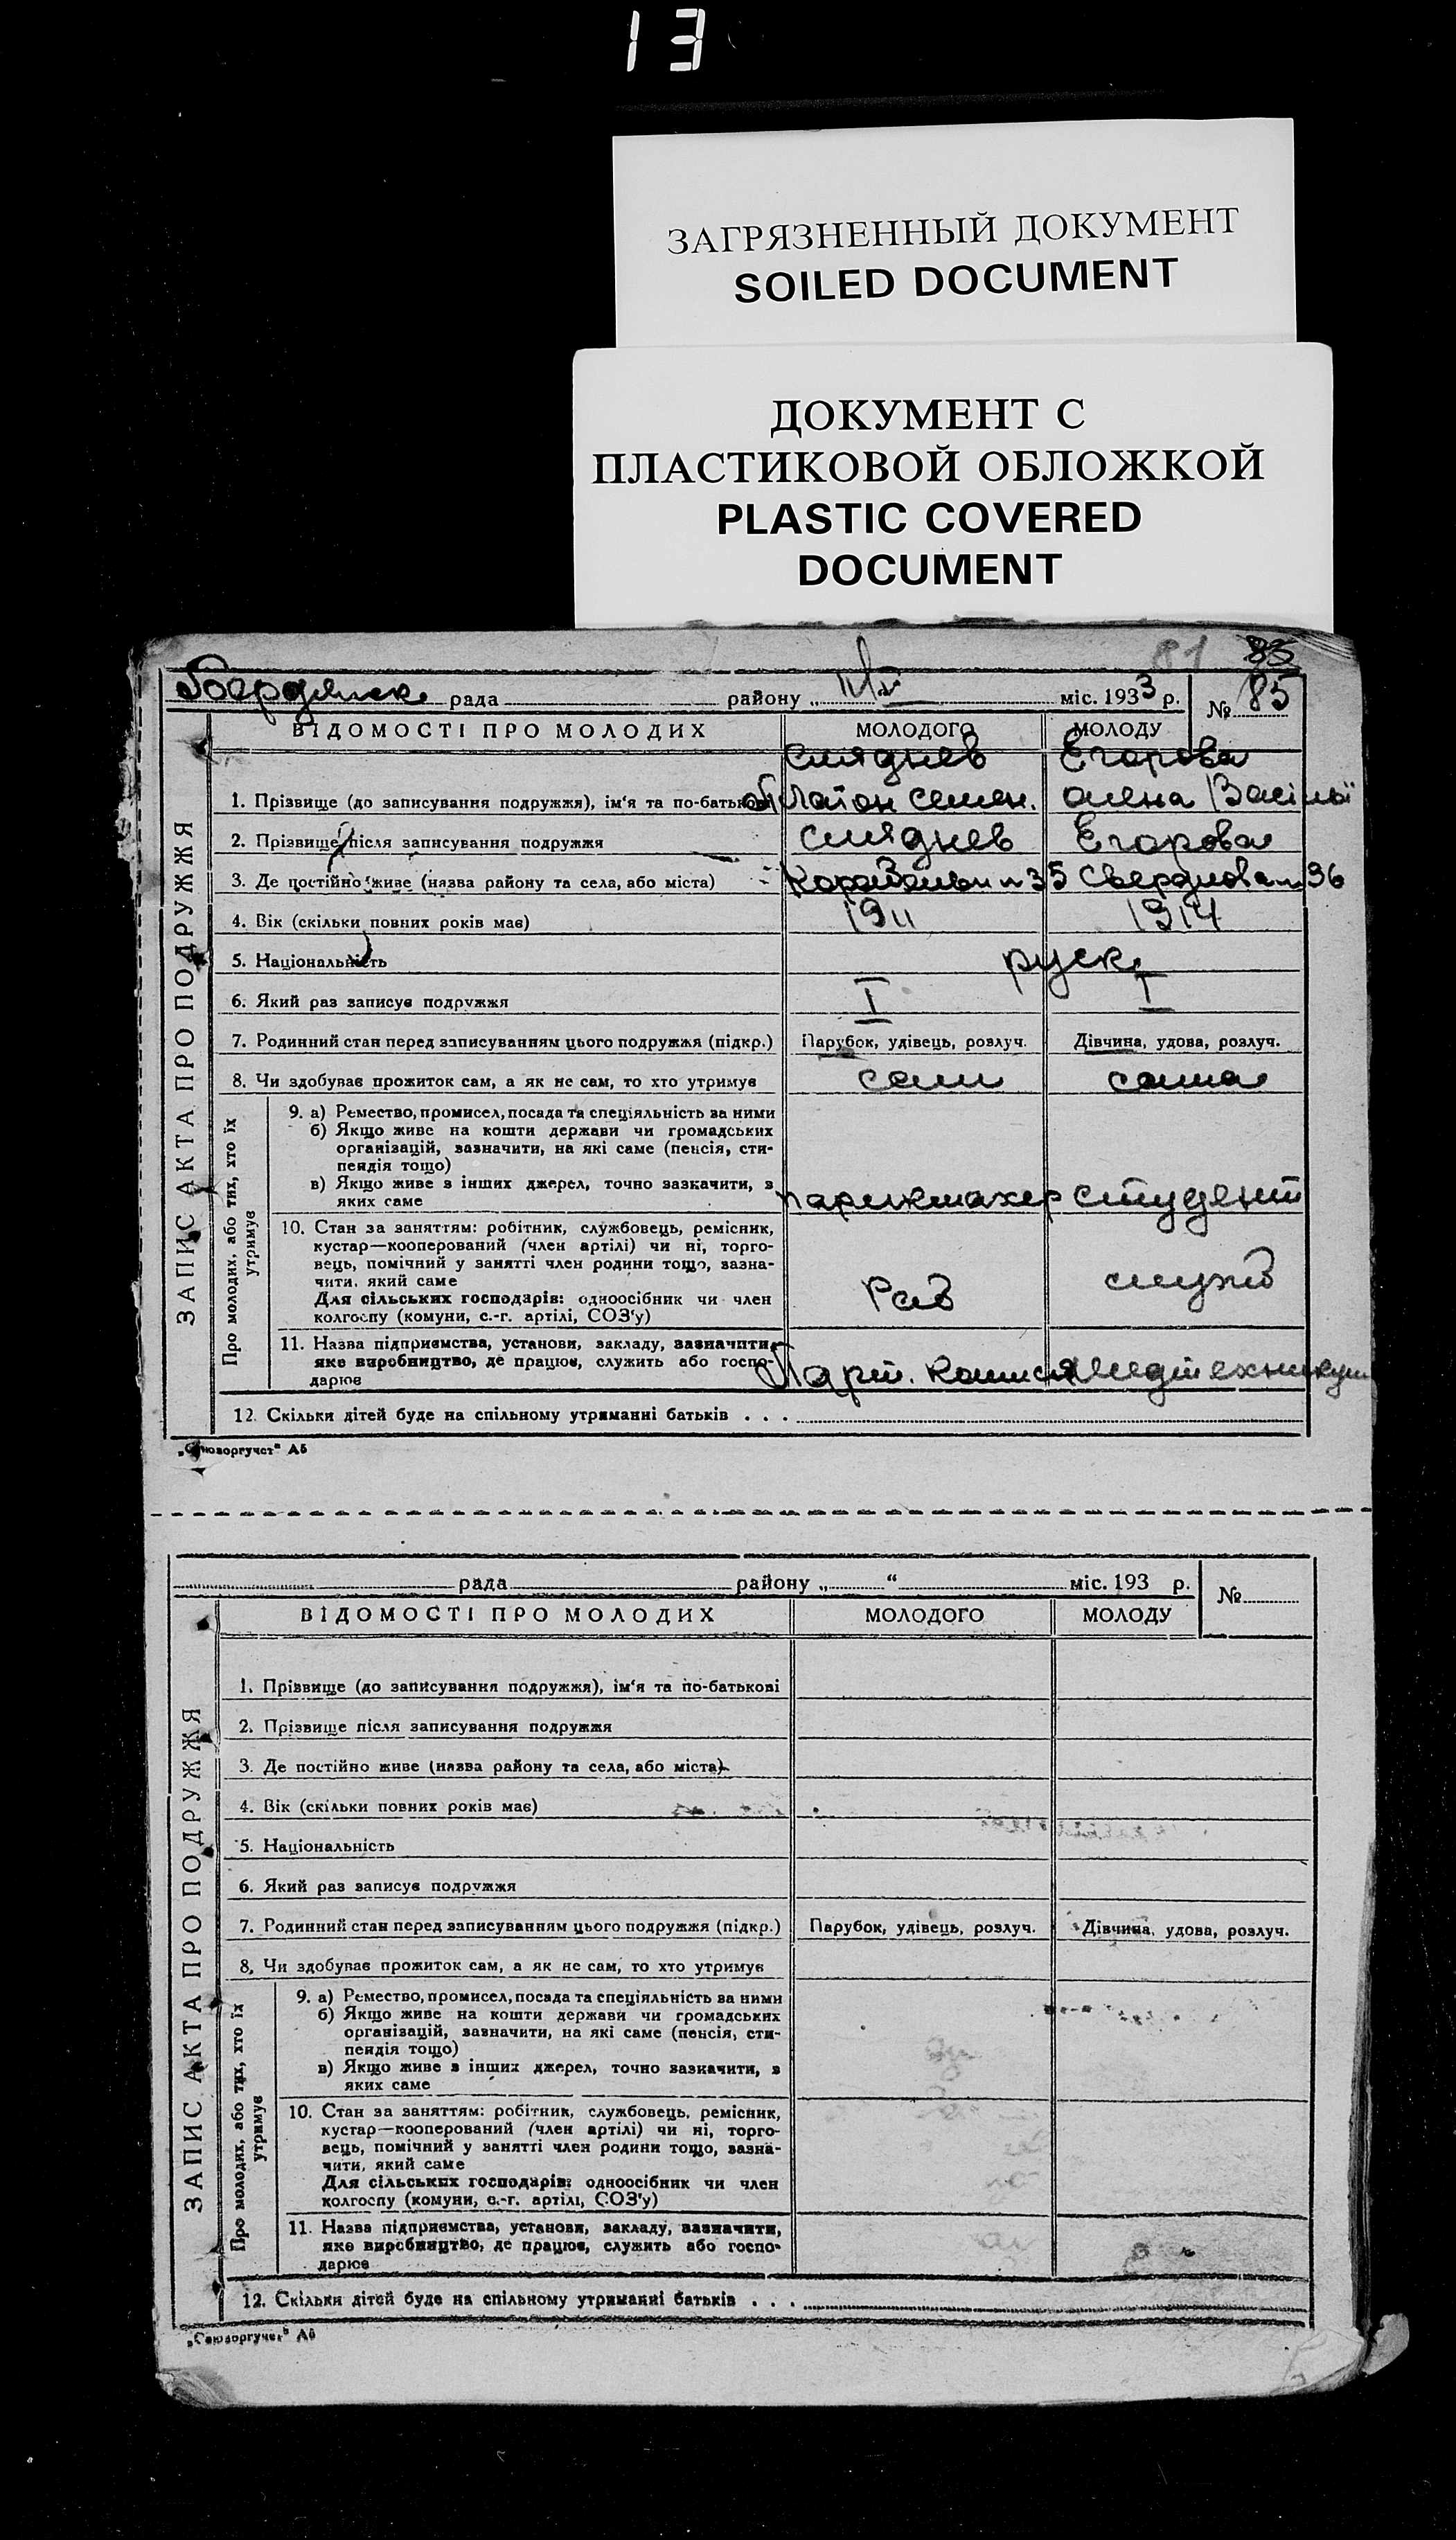 13
ЗАГРЯЗНЕННЫЙ ДОКУМЕНТ
SOILED DOCUMENT
ДОКУМЕНТ С
ПЛАСТИКОВОЙ ОБЛОЖКОЙ
PLASTIC COVERED
DOCUMENT
81 85
Бердянск рада району „ міс. 1933 р. № 85
ЗАПИС АКТА ПРО ПОДРУЖЖЯ
ВІДОМОСТІ ПРО МОЛОДИХ МОЛОДОГО МОЛОДУ
Сляднев Егорова
1. Прізвище (до записування подружжя), ім'я та по-батькові Семен. олена Васіль
2. Прізвище після записування подружжя Сляднев Егорова
3. Де постійно живе (назва району та села, або міста) 35 Свердлова 36
4. Вік (скільки повних років має) 1911 1914
5. Національність руск
6. Який раз записує подружжя I I
7. Родинний стан перед записуванням цього подружжя (підкр.) Парубок, удівець, розлуч. Дівчина, удова, розлуч.
8. Чи здобував прожиток сам, а як не сам, то хто утримує сам сама
Про молодих, або тих, хто їх утримує
9. а) Ремество, промисел, посада та спеціяльність за ними
б) Якщо живе на кошти держави чи громадських
організацій, зазначити, на які саме (пенсія, сти-
пендія тощо)
в) Якщо живе з інших джерел, точно зазначити, з
яких саме парикмахер студент
10. Стан за заняттям: робітник, службовець, ремісник,
кустар—кооперований (член артілі) чи ні, торго-
вець, помічний у занятті член родини тощо, зазна-
чити, який саме
Для сільських господарів: одноосібник чи член
колгоспу (комуни, с.-г. артілі, СОЗ'у) Раб служб
11. Назва підприємства, установи, закладу, зазначити,
яке виробництво, де працює, служить або госпо-
дарює
12. Скільки дітей буде на спільному утриманні батьків . . .
„Союзоргучет" А6
рада району „ “ міс. 193 р. №
ЗАПИС АКТА ПРО ПОДРУЖЖЯ
ВІДОМОСТІ ПРО МОЛОДИХ МОЛОДОГО МОЛОДУ
1. Прізвище (до записування подружжя), ім'я та по-батькові
2. Прізвище після записування подружжя
3. Де постійно живе (назва району та села, або міста)
4. Вік (скільки повних років має)
5. Національність
6. Який раз записує подружжя
7. Родинний стан перед записуванням цього подружжя (підкр.) Парубок, удівець, розлуч. Дівчина, удова, розлуч.
8. Чи здобував прожиток сам, а як не сам, то хто утримує
Про молодих, або тих, хто їх утримує
9. а) Ремество, промисел, посада та спеціяльність за ними
б) Якщо живе на кошти держави чи громадських
організацій, зазначити, на які саме (пенсія, сти-
пендія тощо)
в) Якщо живе з інших джерел, точно зазначити, з
яких саме
10. Стан за заняттям: робітник, службовець, ремісник,
кустар—кооперований (член артілі) чи ні, торго-
вець, помічний у занятті член родини тощо, зазна-
чити, який саме
Для сільських господарів: одноосібник чи член
колгоспу (комуни, с.-г. артілі, СОЗ'у)
11. Назва підприємства, установи, закладу, зазначити,
яке виробництво, де працює, служить або госпо-
дарює
12. Скільки дітей буде на спільному утриманні батьків . . .
„Союзоргучет" А6